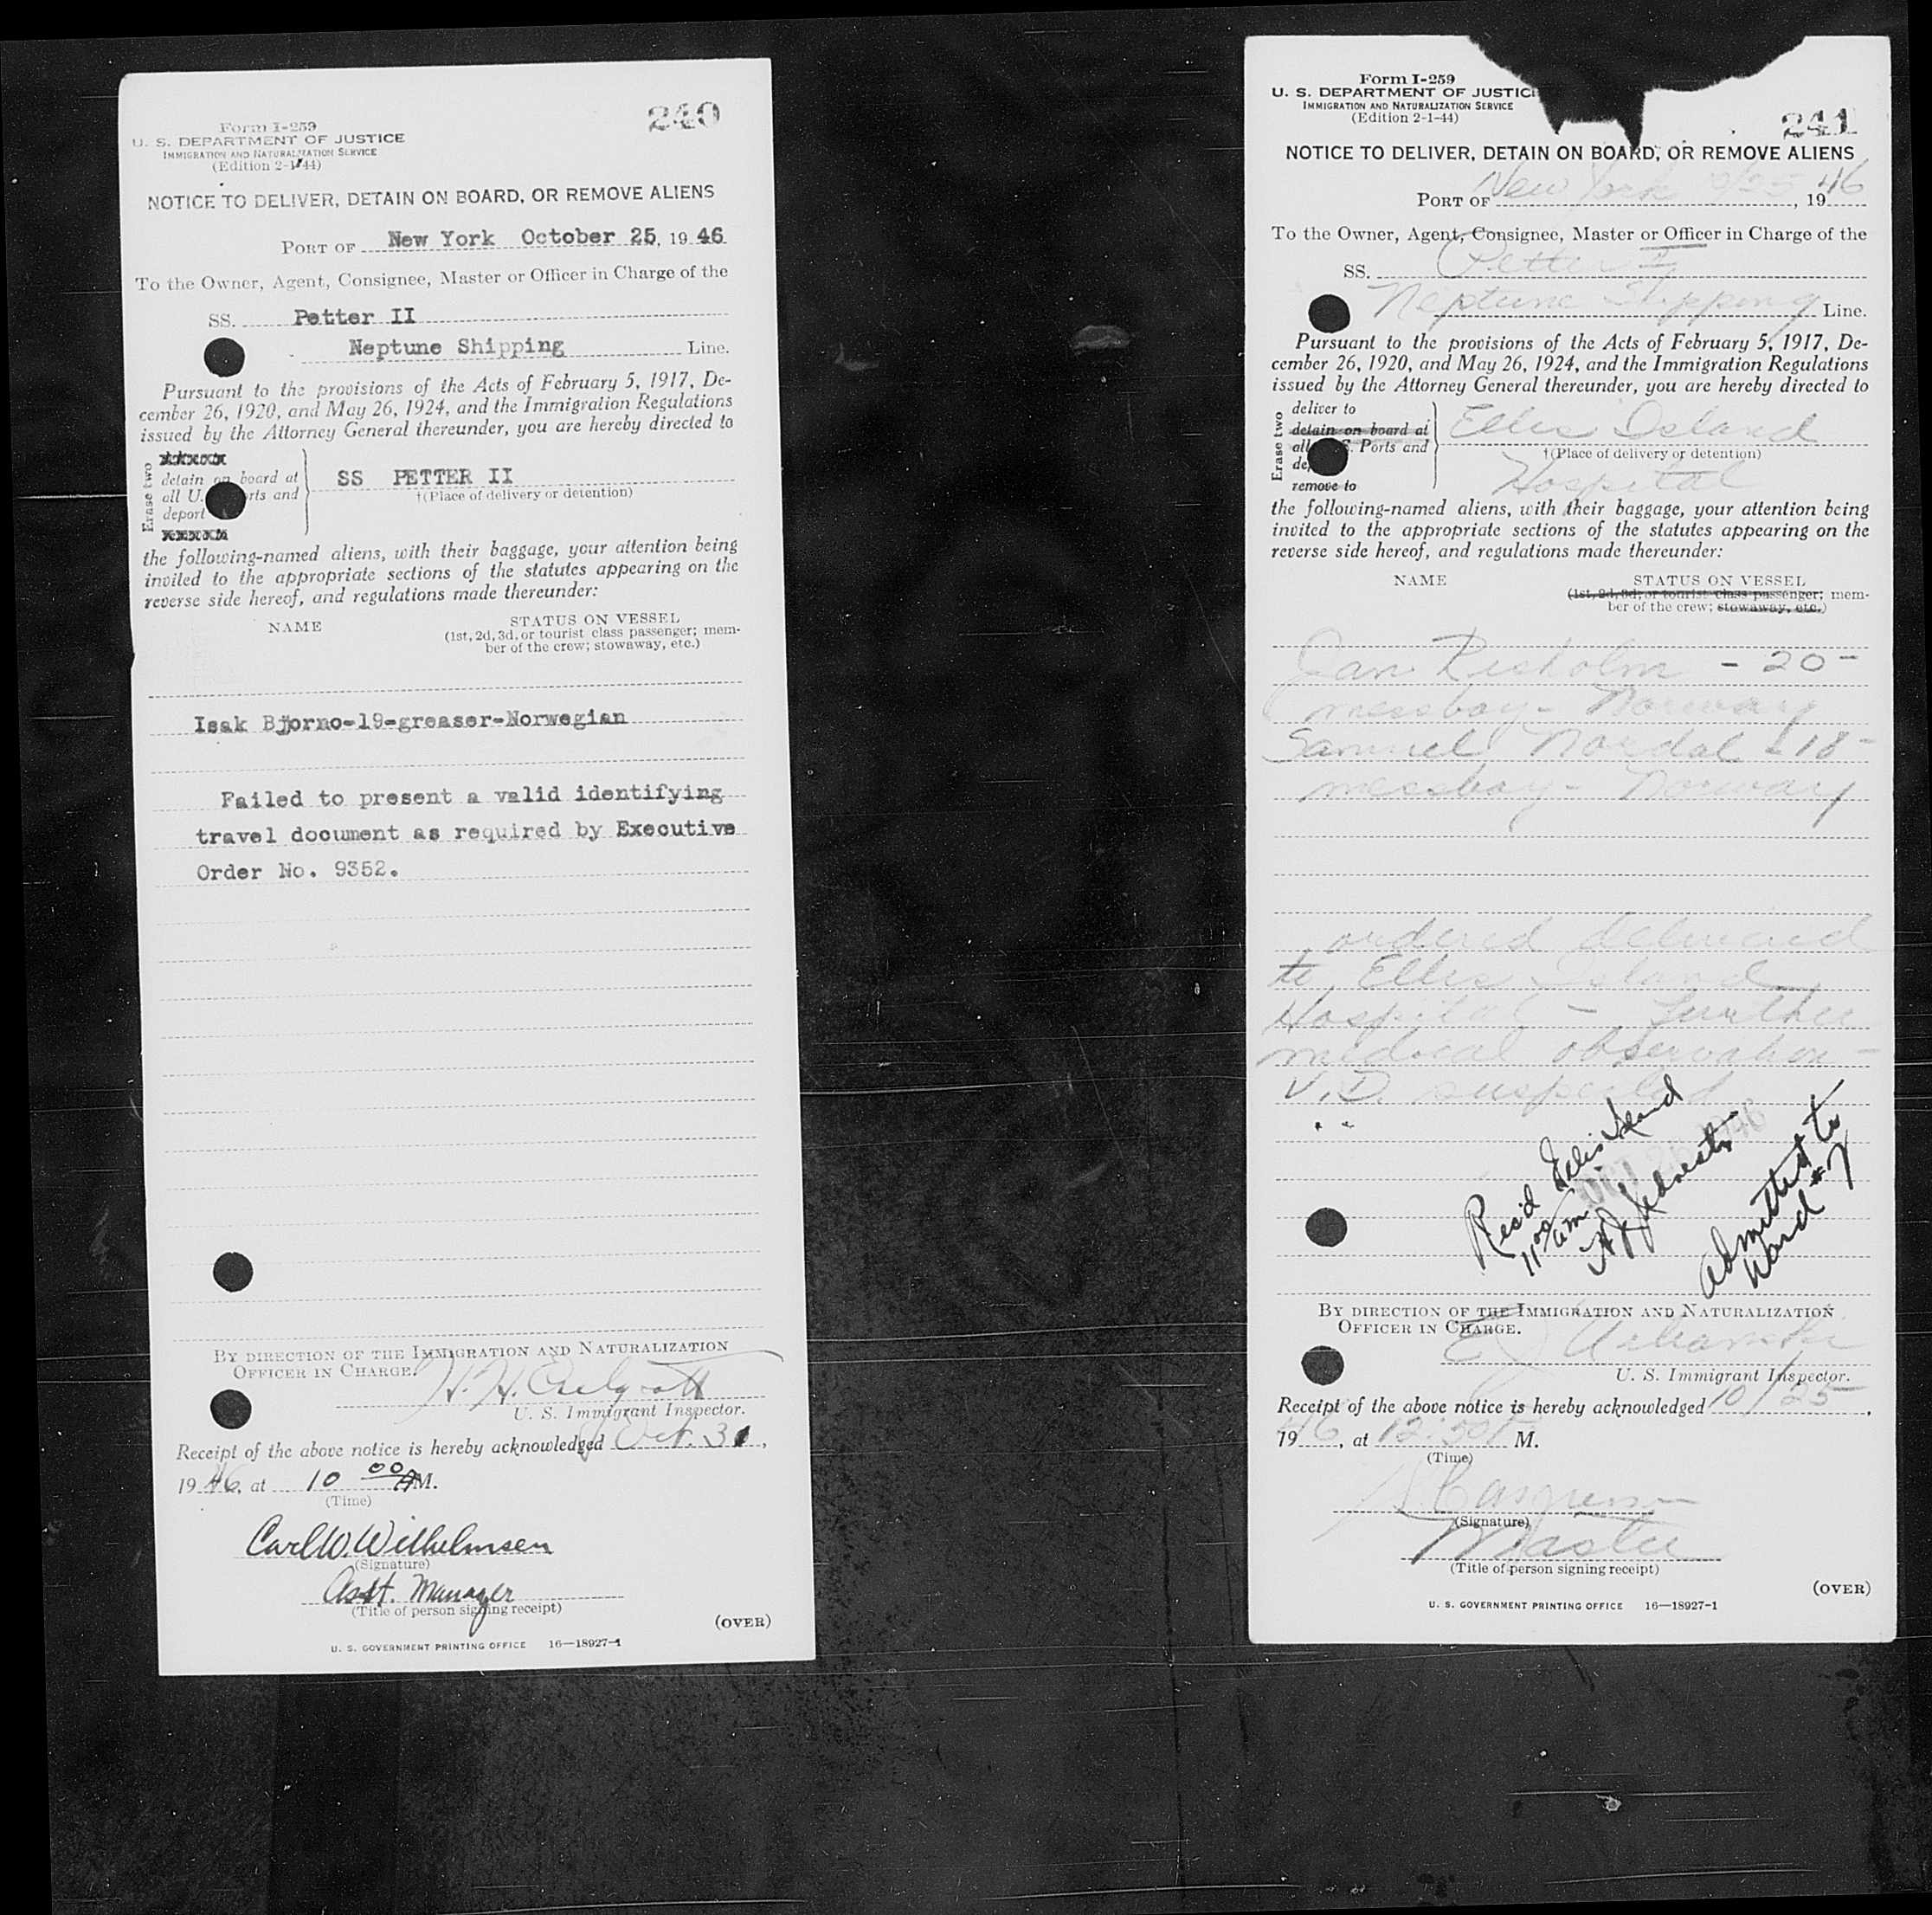 240
Form I-259
U. S. DEPARTMENT OF JUSTICE
IMMIGRATION AND NATURALIZATION SERVICE
(Edition 2-1-44)
NOTICE TO DELIVER, DETAIN ON BOARD, OR REMOVE ALIENS
PORT OF New York October 25, 1946
To the Owner, Agent, Consignee, Master or Officer in Charge of the
SS. Petter II
Neptune Shipping Line.
Pursuant to the provisions of the Acts of February 5, 1917, De-
cember 26, 1920, and May 26, 1924, and the Immigration Regulations
issued by the Attorney General thereunder, you are hereby directed to
Erase two
detain on board at
all U. rts and
deport
SS PETTER II
†(Place of delivery or detention)
the following-named aliens, with their baggage, your attention being
invited to the appropriate sections of the statutes appearing on the
reverse side hereof, and regulations made thereunder:
NAME STATUS ON VESSEL
(1st, 2d, 3d, or tourist class passenger; mem-
ber of the crew; stowaway, etc.)
Isak Bjorno-19-greaser-Norwegian
Failed to present a valid identifying
travel document as required by Executive
Order No. 9352.
BY DIRECTION OF THE IMMIGRATION AND NATURALIZATION
OFFICER IN CHARGE.
H. H.
U. S. Immigrant Inspector.
Receipt of the above notice is hereby acknowledged Oct. 31,
1946, at 10 00 AM.
(Time)
Carl W. Wilhelmsen
(Signature)
Asst. Manager
(Title of person signing receipt)
(OVER)
U. S. GOVERNMENT PRINTING OFFICE 16—18927-1
Form I-259
U. S. DEPARTMENT OF JUSTIC
IMMIGRATION AND NATURALIZATION SERVICE
(Edition 2-1-44)
241
NOTICE TO DELIVER, DETAIN ON BOARD, OR REMOVE ALIENS
PORT OF New York /25, 1946
To the Owner, Agent, Consignee, Master or Officer in Charge of the
SS. Petter II
Neptune Shipping Line.
Pursuant to the provisions of the Acts of February 5, 1917, De-
cember 26, 1920, and May 26, 1924, and the Immigration Regulations
issued by the Attorney General thereunder, you are hereby directed to
Erase two
deliver to
detain on board at
all S. Ports and
de
remove to
Ellis Island
†(Place of delivery or detention)
Hospital
the following-named aliens, with their baggage, your attention being
invited to the appropriate sections of the statutes appearing on the
reverse side hereof, and regulations made thereunder:
NAME STATUS ON VESSEL
(1st, 2d, 3d, or tourist class passenger; mem-
ber of the crew; stowaway, etc.)
Jan Risholm - 20 -
messboy - Norway
Samuel Nordal - 18 -
messboy - Norway
ordered delivered
to Ellis Island
Hospital - Further
medical observation -
V.D. suspected
Rec'd Ellis Island
11 00 am
OCT 1946
Admitted to
Ward #7
BY DIRECTION OF THE IMMIGRATION AND NATURALIZATION
OFFICER IN CHARGE.
U. S. Immigrant Inspector.
Receipt of the above notice is hereby acknowledged 10/25,
1946, at 12:50 P M.
(Time)
(Signature)
Master
(Title of person signing receipt)
(OVER)
U. S. GOVERNMENT PRINTING OFFICE 16—18927-1